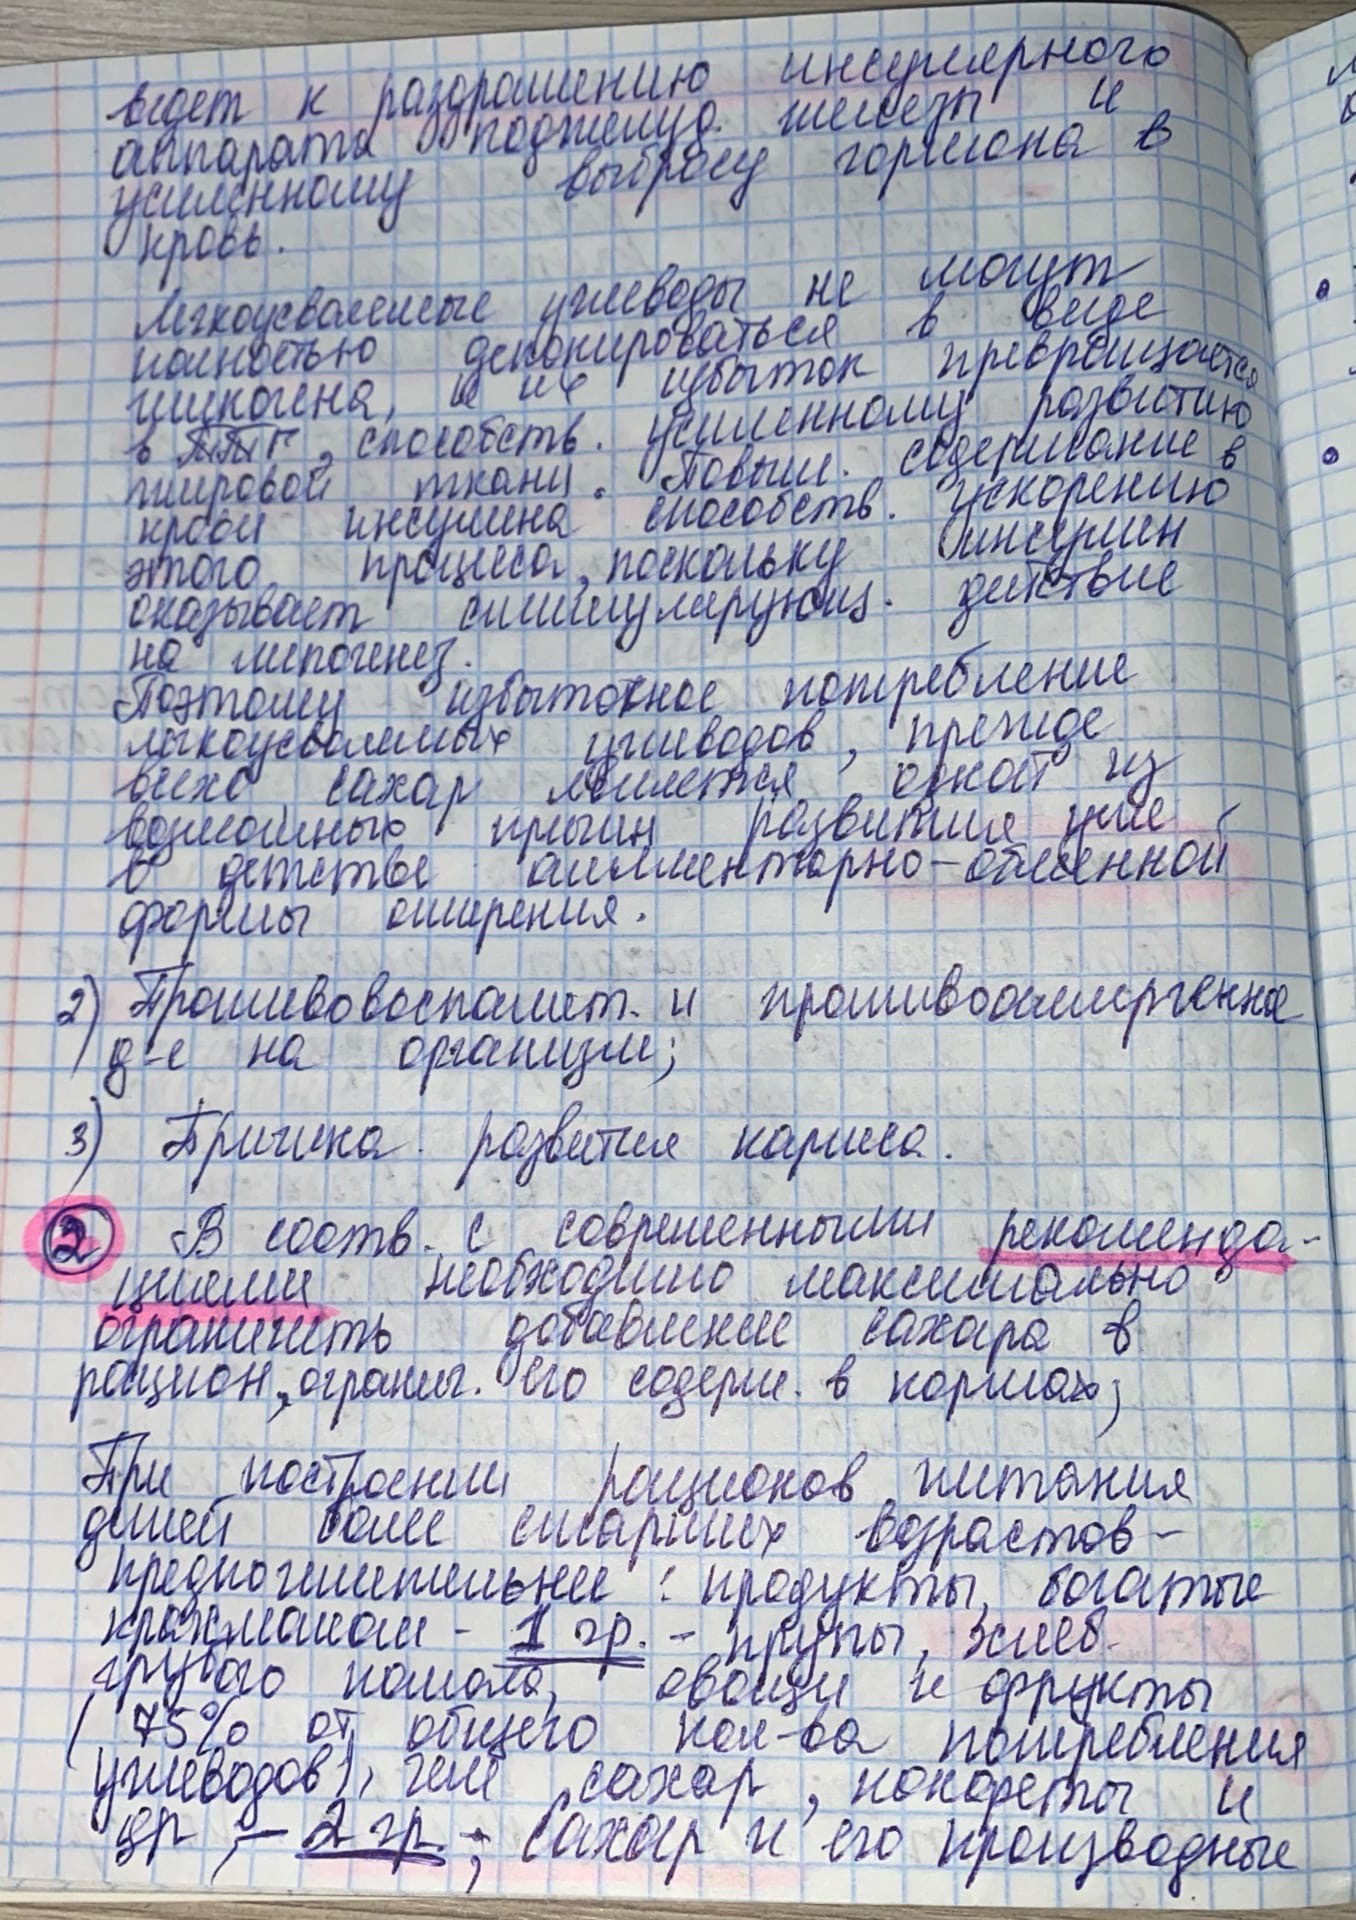 ведет к раздражению инсулярного
аппарата поджелуд. железы и
усиленному выбросу гормона в
кровь.
Легкоусвояемые углеводы не могут
полностью депонироваться в виде
гликогена, и их избыток превращается
в ТТГ, способств. усиленному развитию
жировой ткани. Повыш. содержание в
крови инсулина способств. ускорению
этого процесса, поскольку инсулин
оказывает стимулирующ. действие
на липогенез.
Поэтому избыточное потребление
легкоусвояемых углеводов, прежде
всего сахар является одной из
возможных причин развития уже
в детстве алиментарно-обменной
формы ожирения.
2) Противовоспалит. и противоаллергенное
д-е на организм;
3) Причина развития кариеса.
2 В соотв. с современными рекоменда-
циями необходимо максимально
ограничить добавление сахара в
рацион, огранич. его содерж. в нормах;
При построении рационов питания
детей более старших возрастов -
предпочтительнее : продукты, богатые
крахмалом - 1 гр. - крупы, хлеб
грубого помола, овощи и фрукты
( 75% от общего кол-ва потребления
углеводов), чем сахар, конфеты и
др, - 2 гр - ; Сахар и его производные